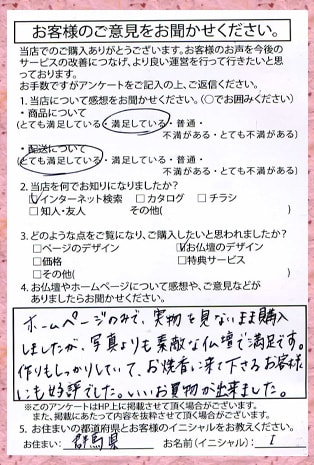 お客様のご意見をお聞かせください。
当店でのご購入ありがとうございます。お客様のお声を今後の
サービスの改善につなげ、より良い運営を行って行きたいと思
っております。
お手数ですがアンケートをご記入の上、ご返信ください。
1. 当店について感想をお聞かせください。(○でお囲みください)
・商品について
(とても満足している・満足している・普通・
不満がある・とても不満がある)
・配送について
(とても満足している・満足している・普通・
不満がある・とても不満がある)
2. 当店を何でお知りになりましたか?
☑インターネット検索 □カタログ □チラシ
□知人・友人 その他( )
3. どのような点をご覧になり、ご購入したいと思われましたか?
□ページのデザイン ☑お仏壇のデザイン
□価格 □特典サービス
□その他( )
4. お仏壇やホームページについて感想や、ご意見などが
ありましたらお聞かせください。
ホームページのみで、実物を見ないまま購入
しましたが、写真よりも素敵な仏壇で満足です。
作りもしっかりしていて、お焼香に来て下さるお客様
にも好評でした。いいお買物が出来ました。
※このアンケートはHP上に掲載させて頂く場合がございます。
また、掲載にあたって内容を抜粋させて頂く場合がございます。
5. お住まいの都道府県とお客様のイニシャルをお教えください。
お住まい: 群馬県 お名前(イニシャル): I